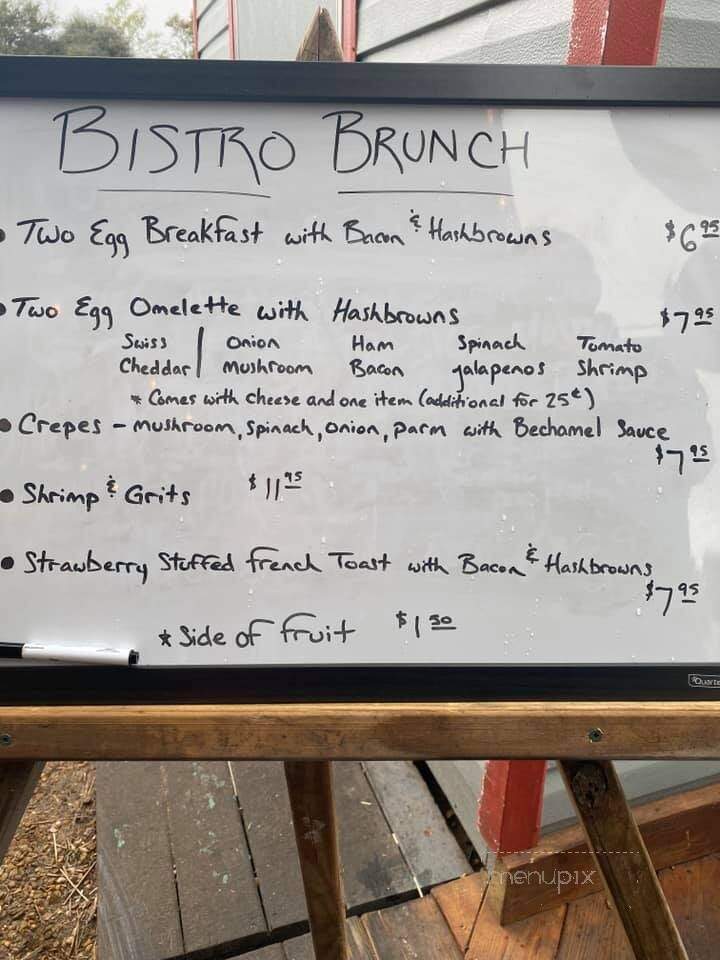 BISTRO BRUNCH
• Two Egg Breakfast with Bacon & Hashbrowns $6.95
• Two Egg Omelette with Hashbrowns $7.95
Swiss | Onion Ham Spinach Tomato
Cheddar | Mushroom Bacon Jalapenos Shrimp
* Comes with Cheese and one item (additional for 25¢)
• Crepes - Mushroom, Spinach, Onion, Parm with Bechamel Sauce
$7.95
• Shrimp & Grits $11.95
• Strawberry Stuffed French Toast with Bacon & Hashbrowns
$7.95
* Side of Fruit $1.50
Quarte
menupix